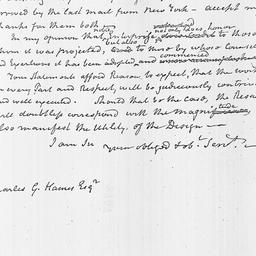 arrived by the last mail from New York – accept my
thanks for them both
In my opinion that Enterprise not only does honor to those
whom it was projected, but also to those by whose Counsels
and Exertions it has been adopted, and commenced
Your Talents afford Reason to expect, that the work
in every Part and Respect, will be judiciously contrived
and well executed. Should that be the case, the Result
will doubtless correspond with the magnitude
also manifest the Utility, of the Design —
I am Sir your obliged & obt. Servt.
Charles G. Haines Esqr